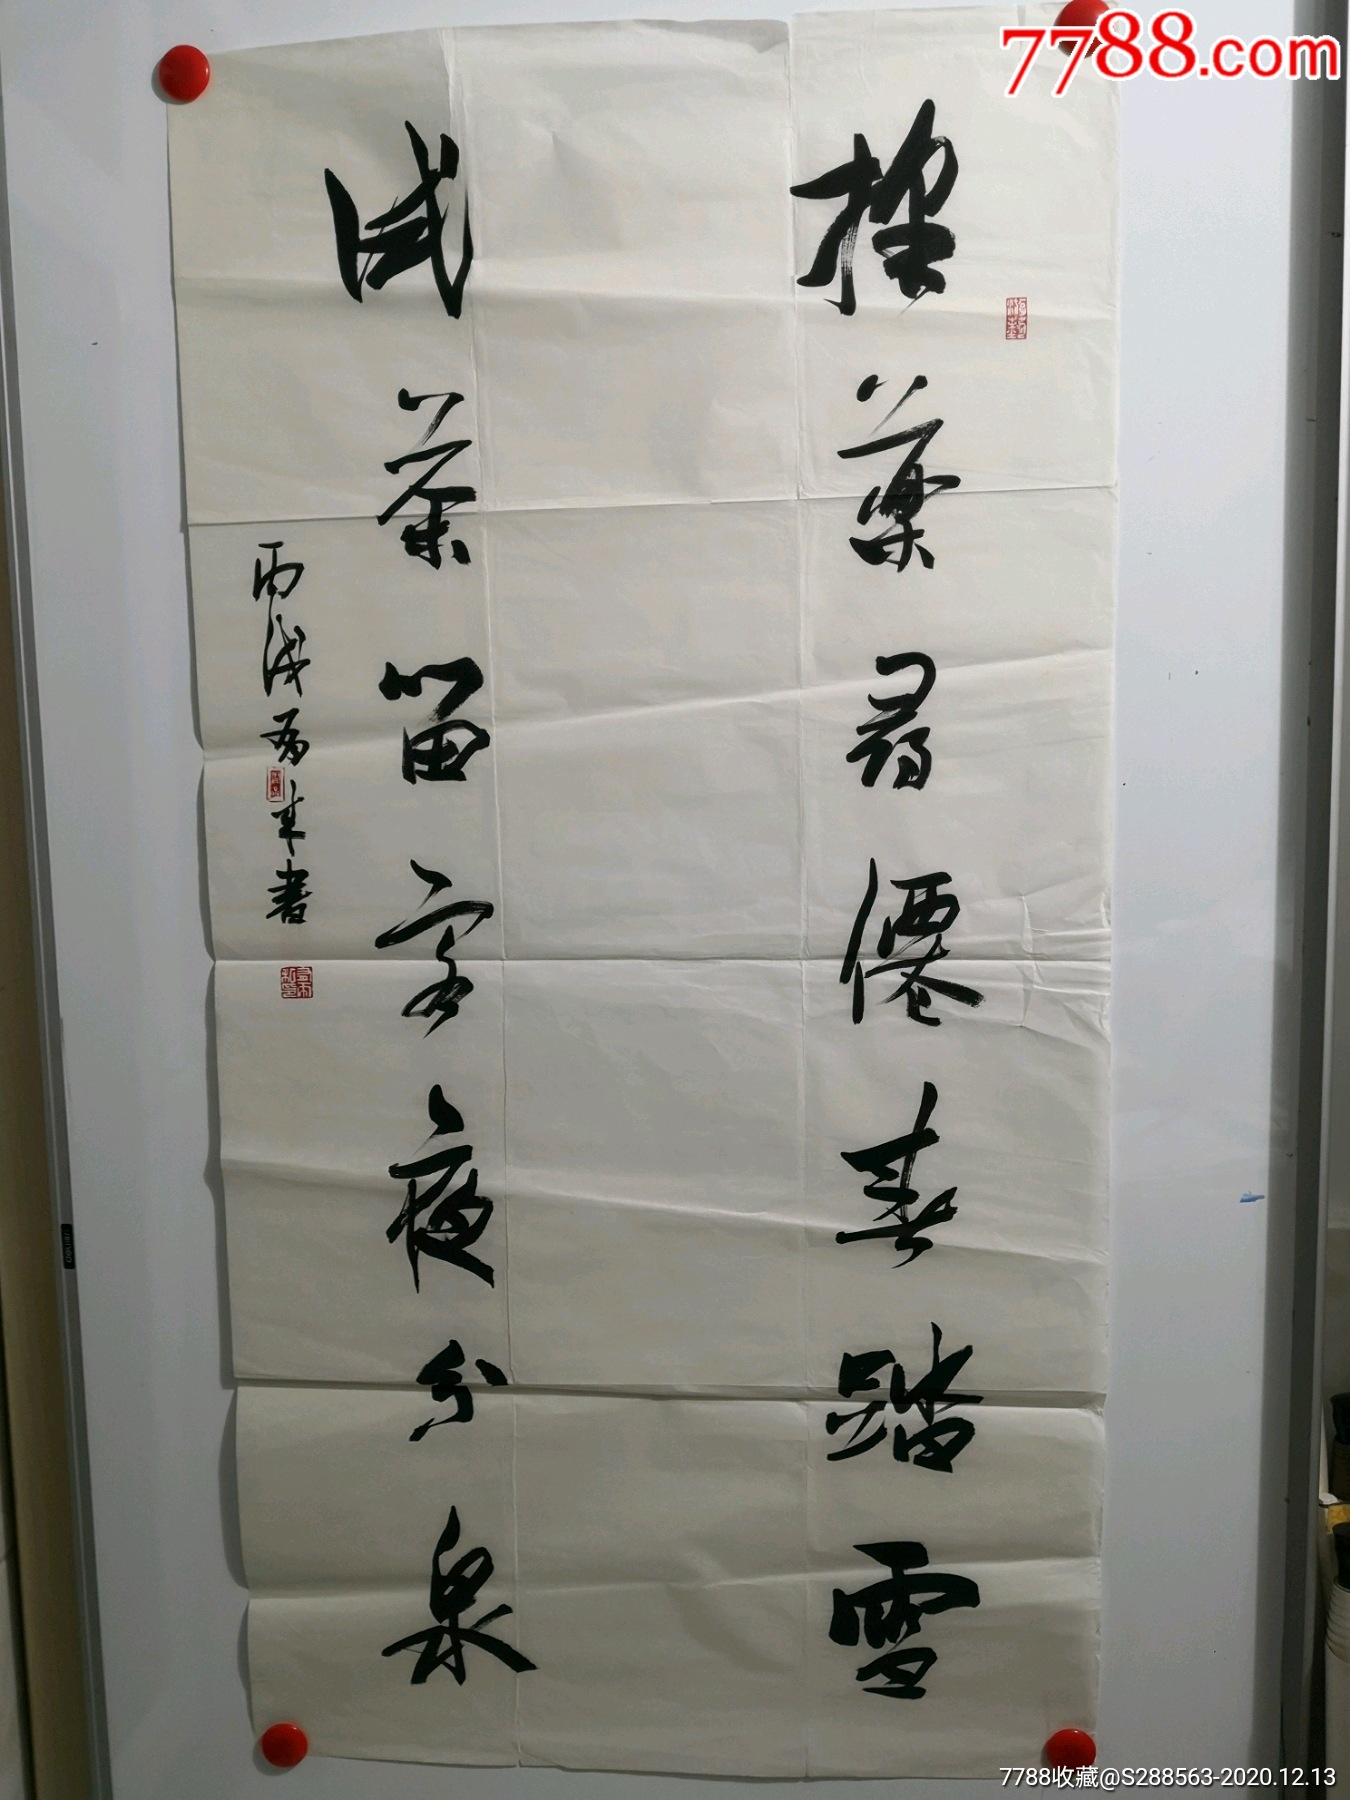 7788.com
採藥尋僊春踏雪
試茶留客夜分泉
丙戌書
7788收藏@S288563-2020.12.13